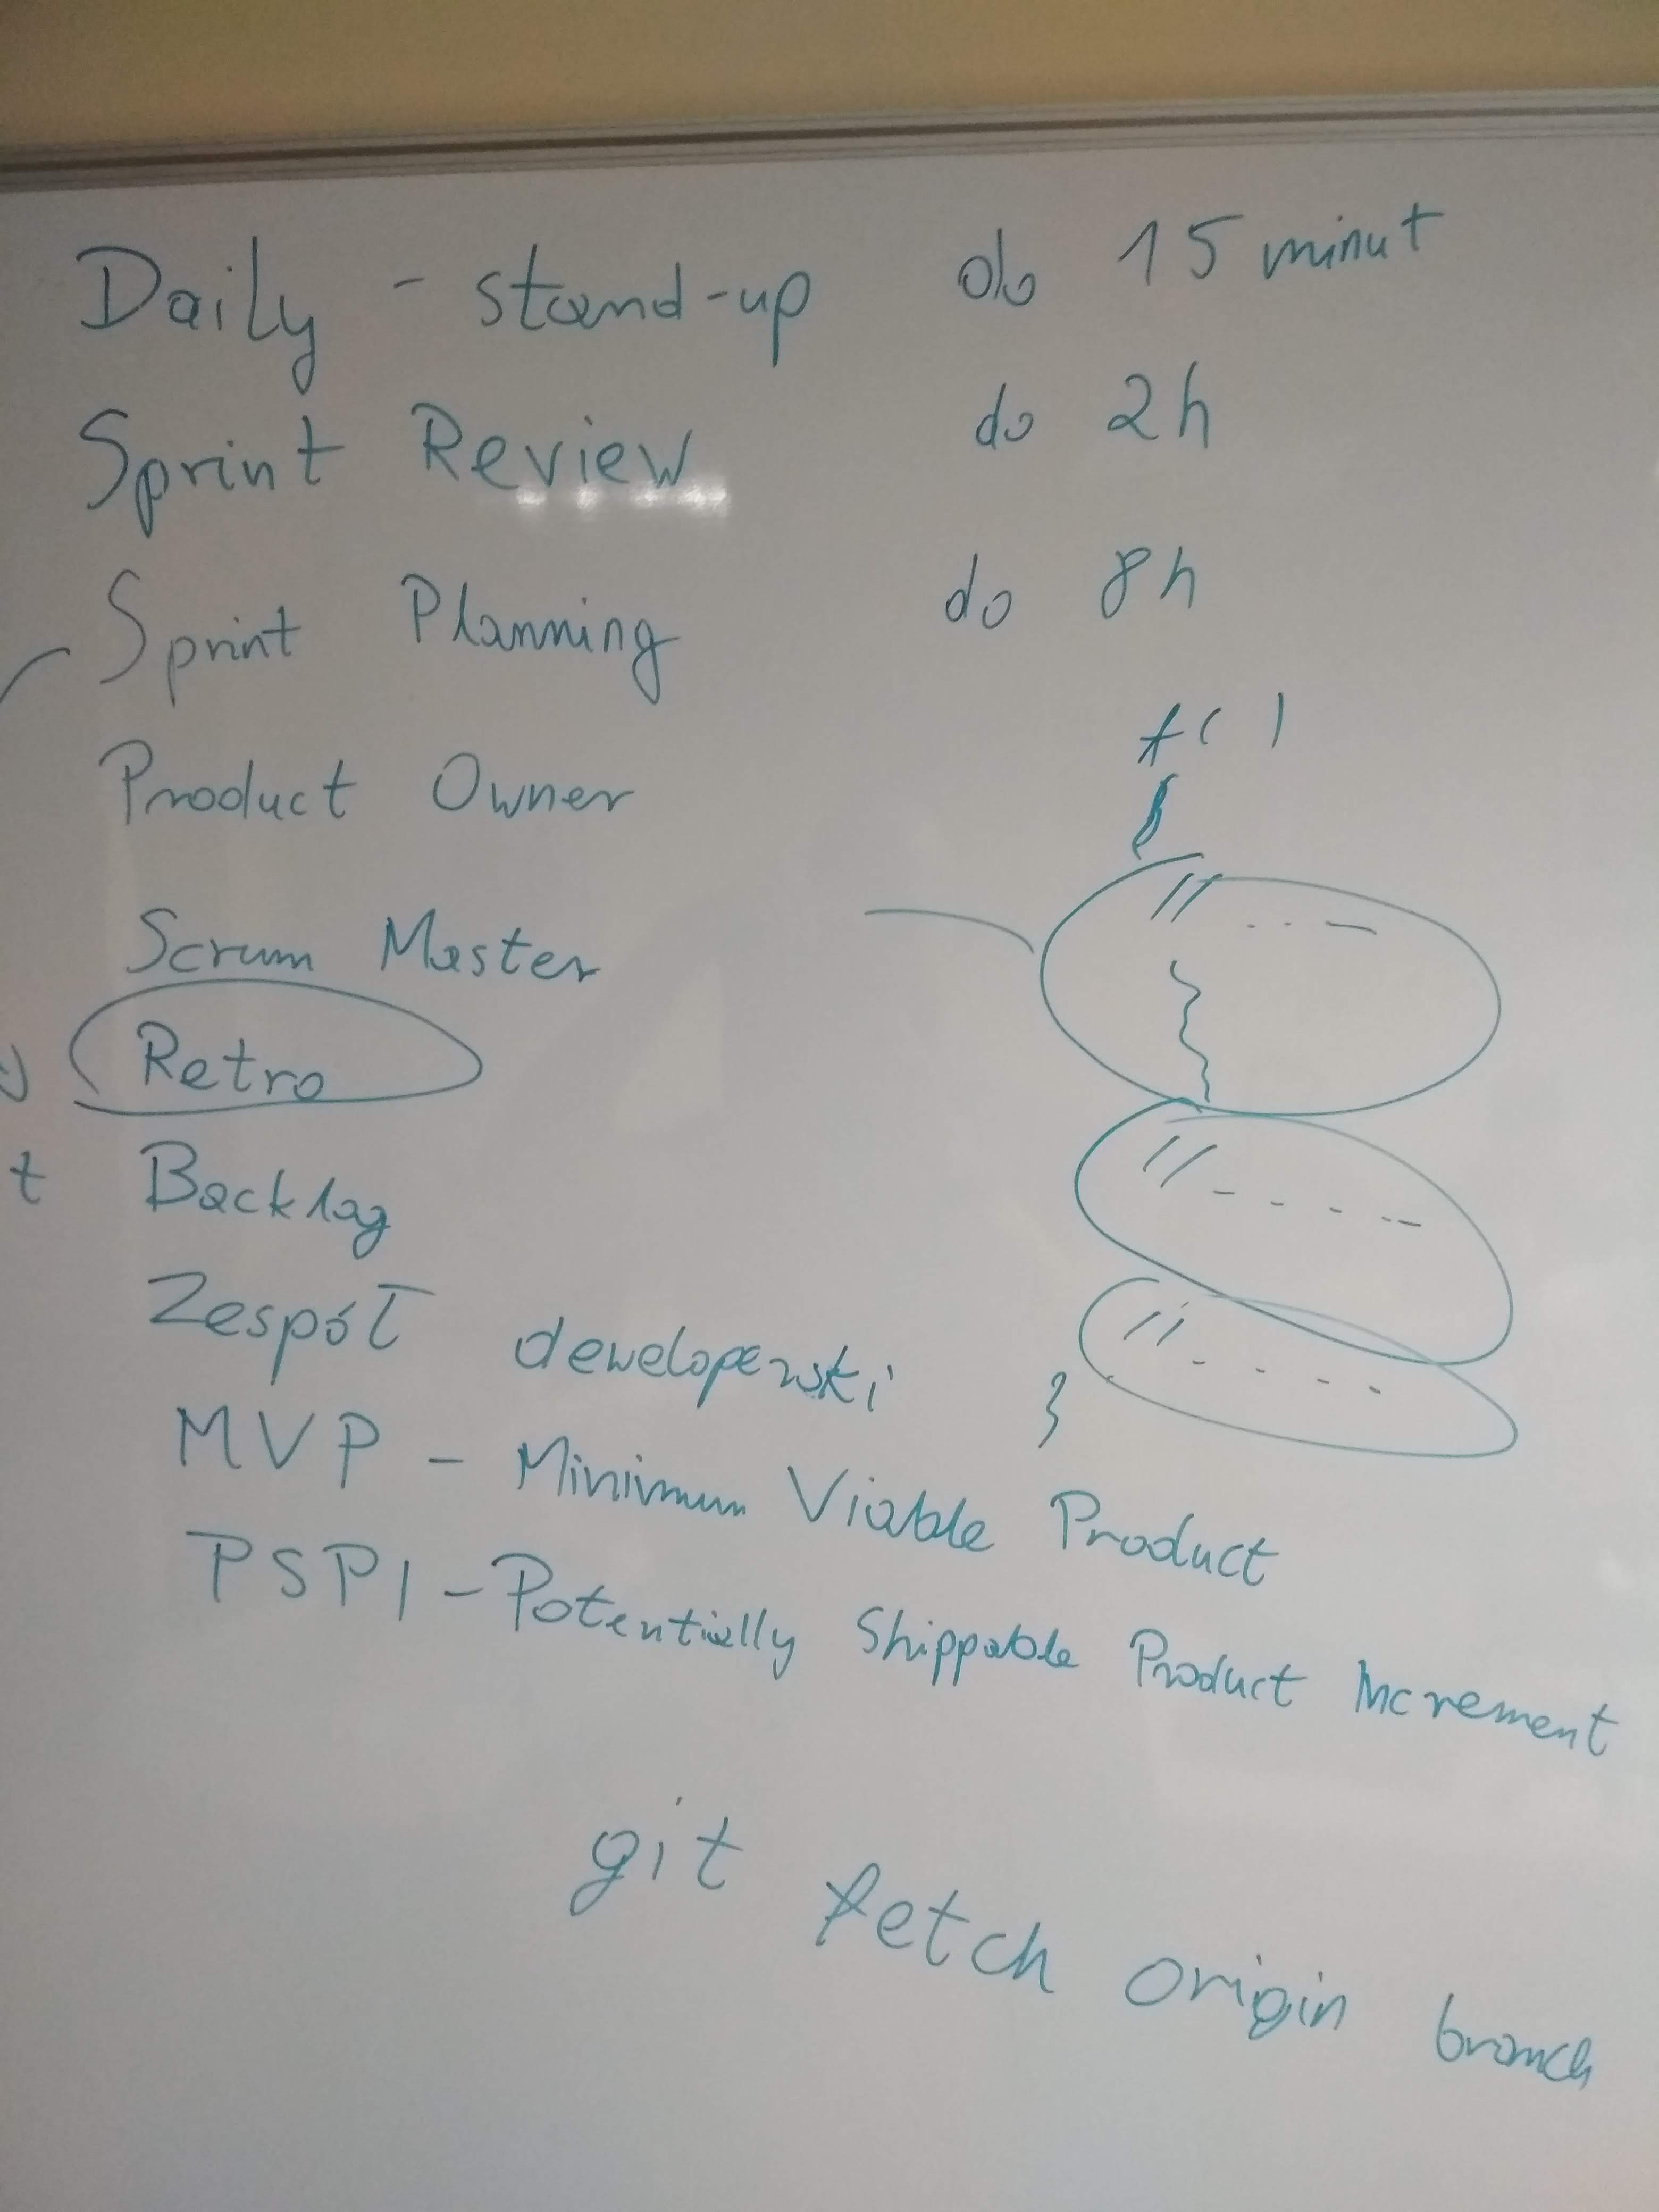 Daily - stand-up do 15 minut
Sprint Review do 2h
Sprint Planning do 8h
Product Owner
f( )
{
//
Scrum Master
Retro
//
t Backlog
//
Zespół deweloperski
}
MVP - Minimum Viable Product
PSPI - Potentially Shippable Product Increment
git fetch origin branch